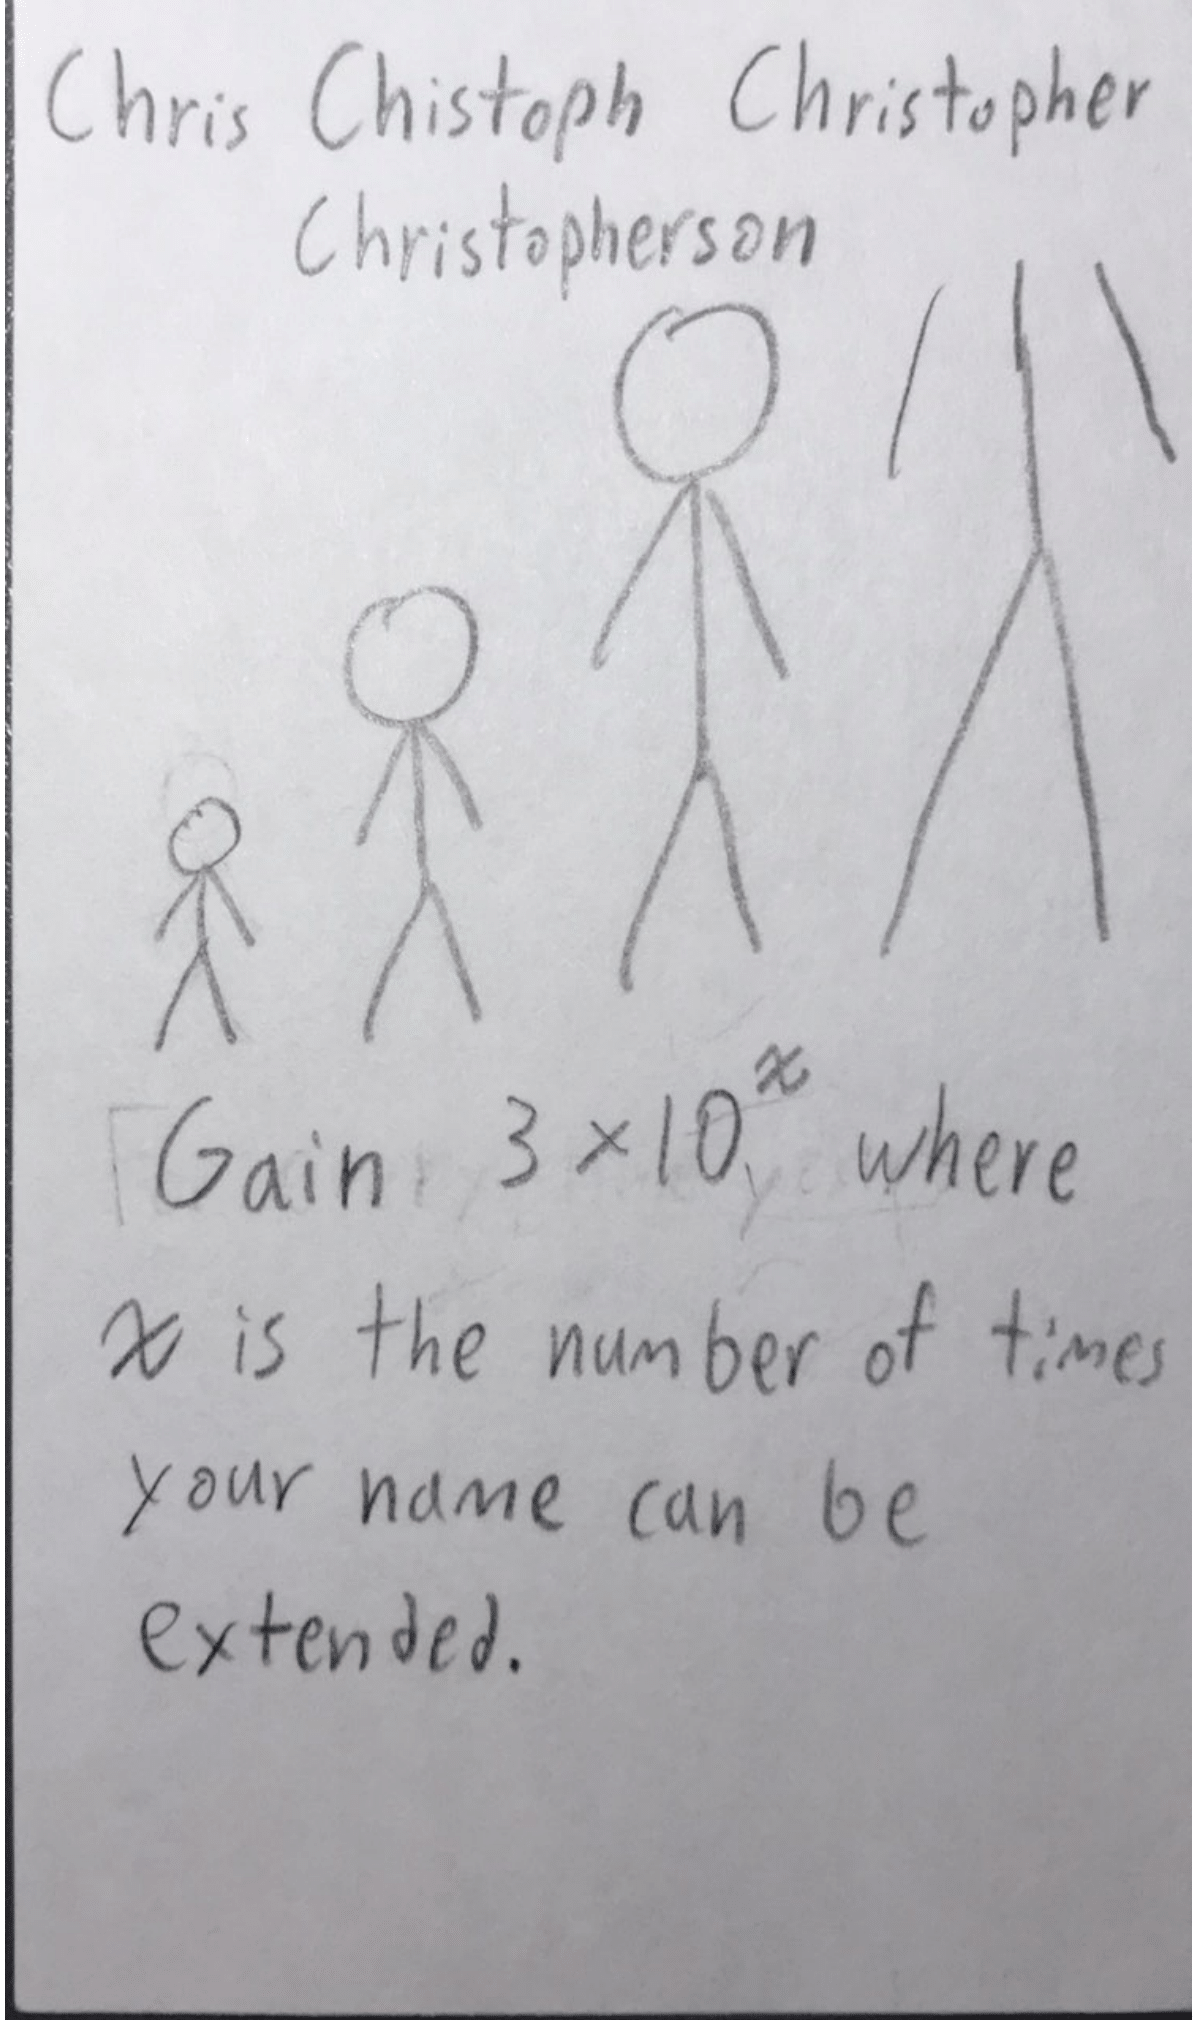 Chris Chistoph Christopher
Christopherson
Gain 3×10ˣ where
x is the number of times
your name can be
extended.